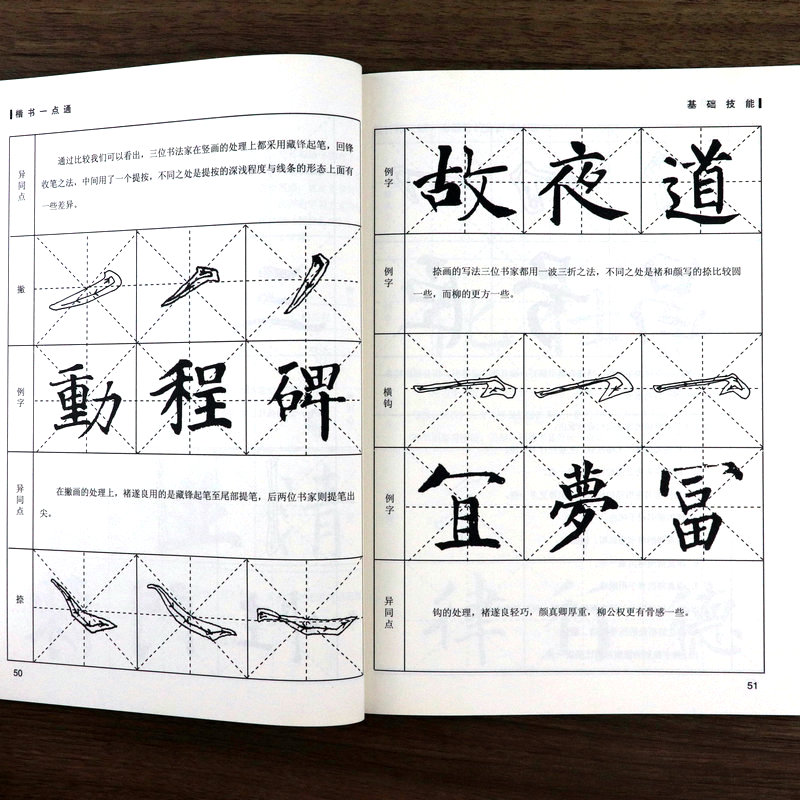 楷书一点通
异同点
通过比较我们可以看出，三位书法家在竖画的处理上都采用藏锋起笔，回锋
收笔之法，中间用了一个提按，不同之处是提按的深浅程度与线条的形态上面有
一些差异。
撇
例字
動 程 碑
异同点
在撇画的处理上，褚遂良用的是藏锋起笔至尾部提笔，后两位书家则提笔出
尖。
捺
50
基础技能
例字
故 夜 道
例字
捺画的写法三位书家都用一波三折之法，不同之处是褚和颜写的捺比较圆
一些，而柳的更方一些。
横钩
例字
冝 夢 冨
异同点
钩的处理，褚遂良轻巧，颜真卿厚重，柳公权更有骨感一些。
51